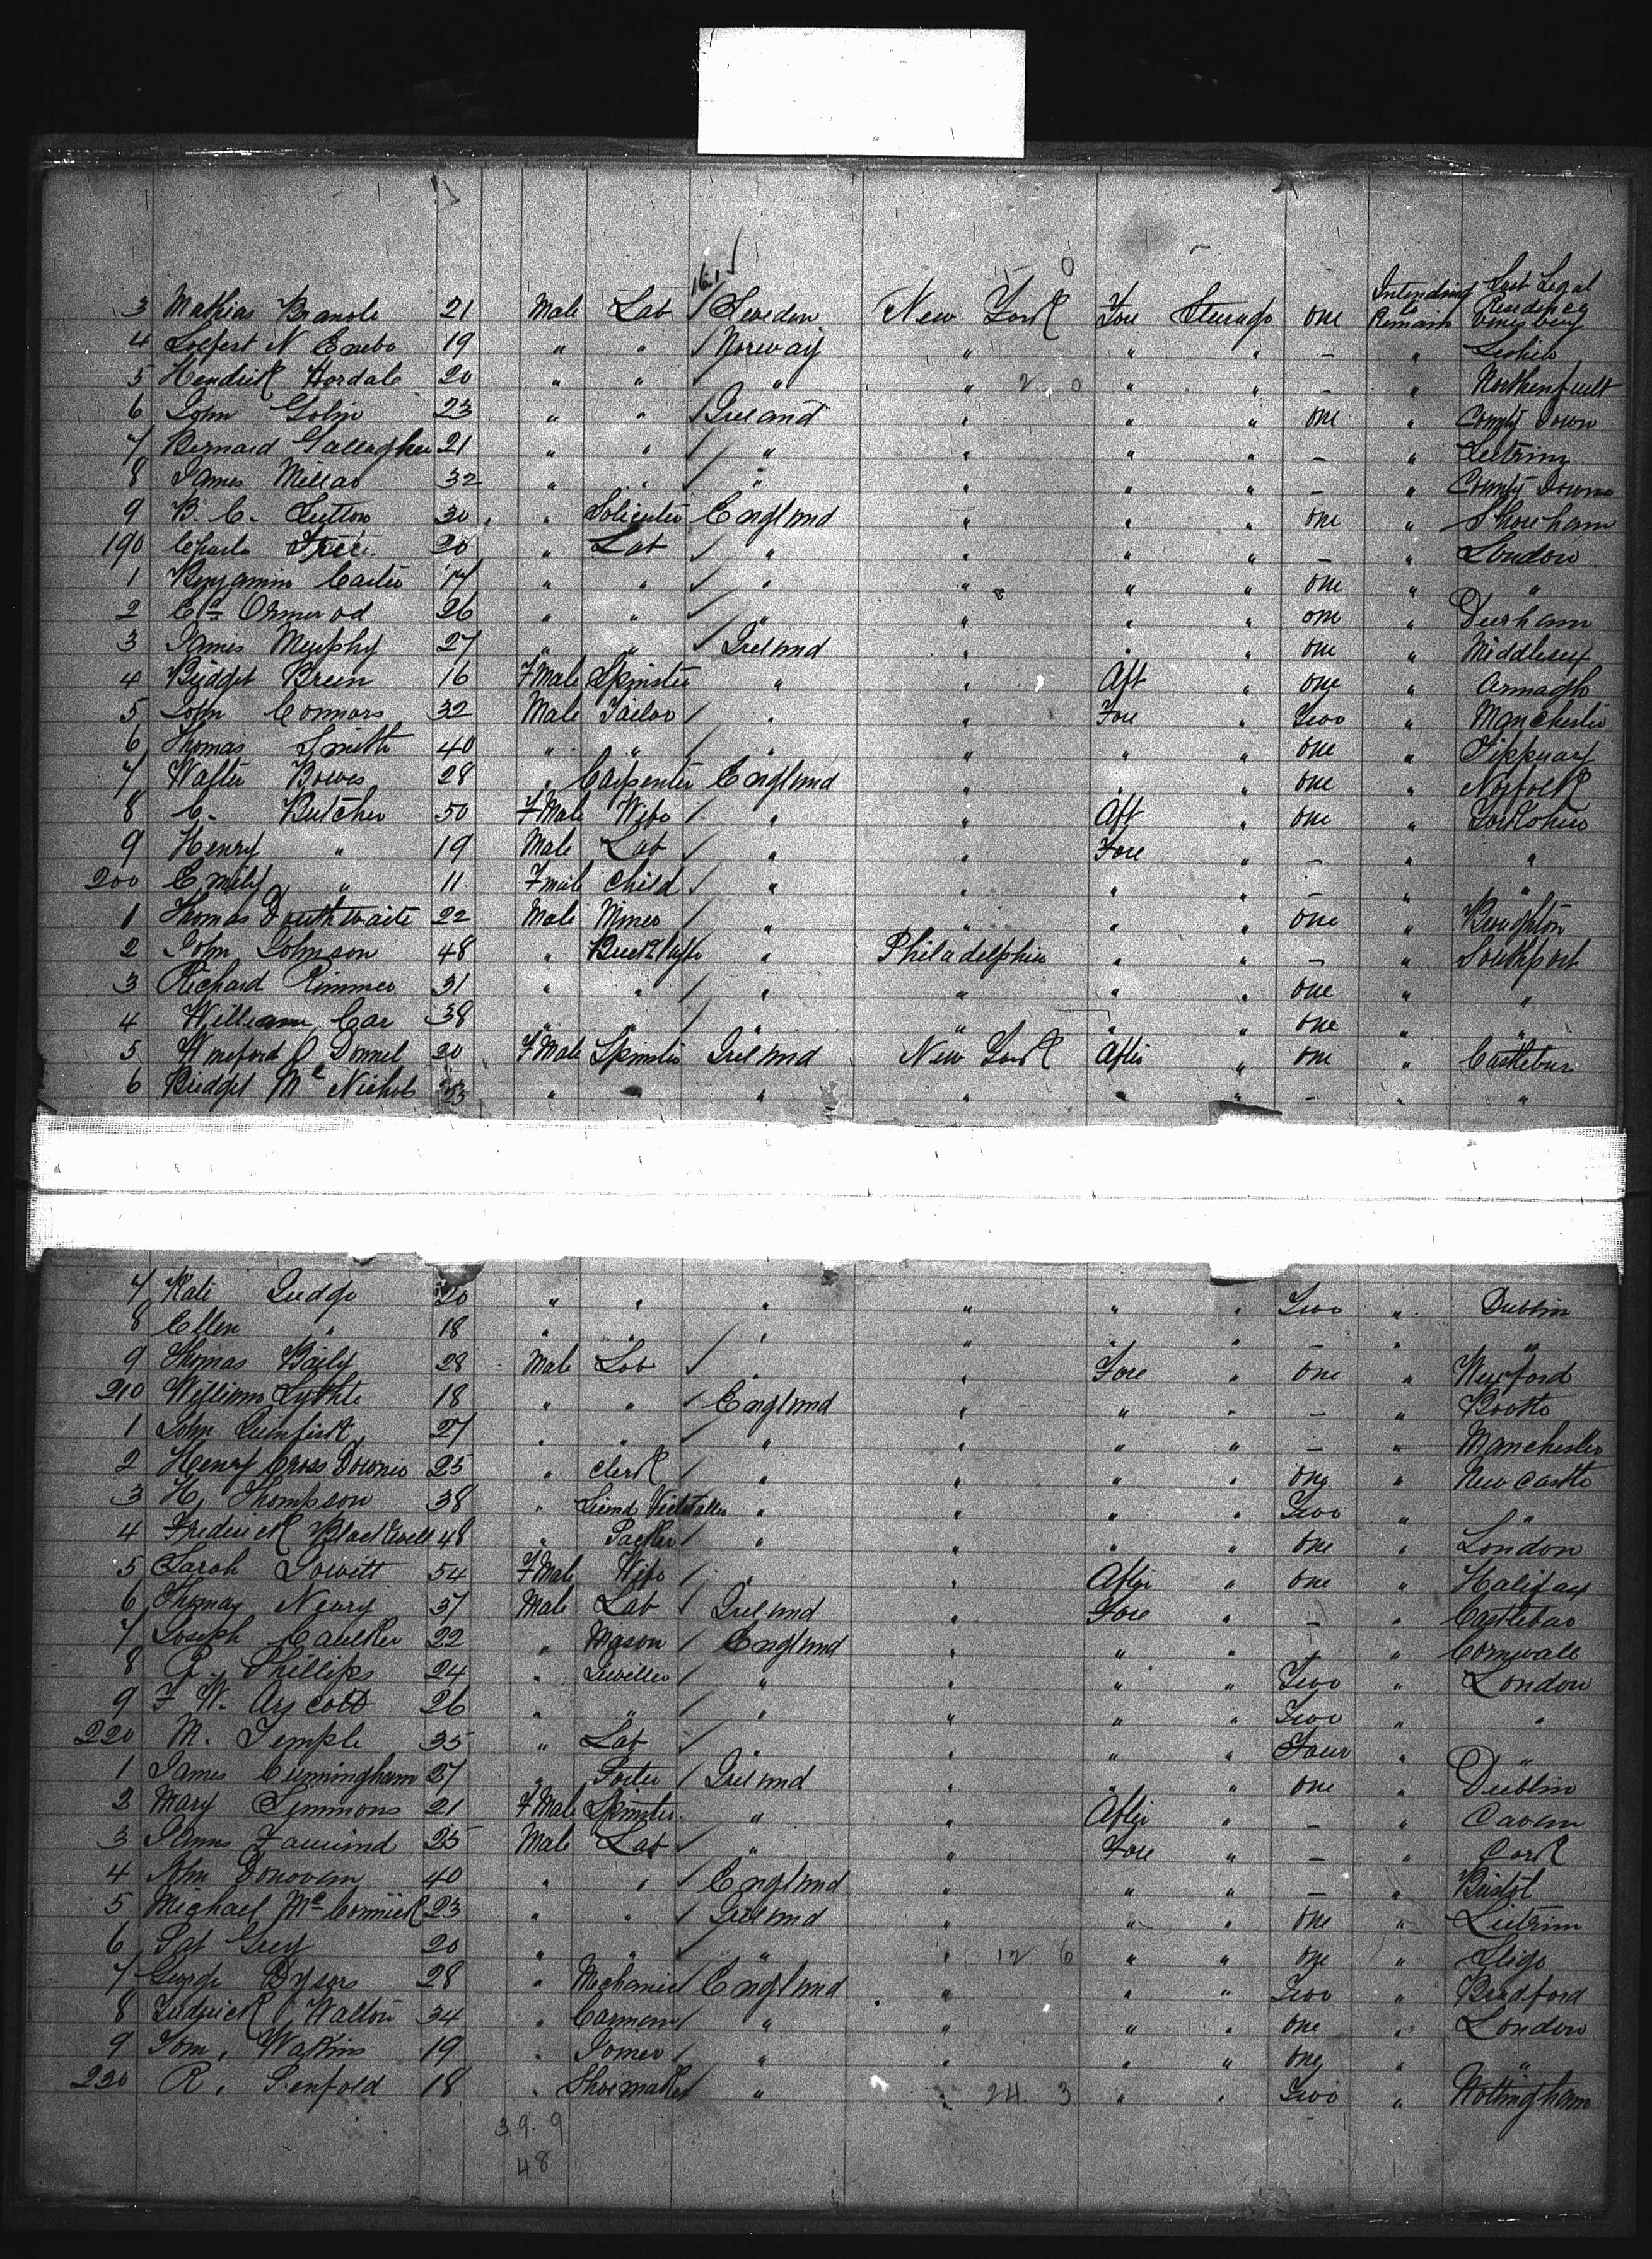 Last Legal
Intending to Remain Residence
3 Mathias 21 Male Lab / Sweden New York Fore Steerage one
4 N Enebo 19 " " / Norway " " " – "
5 Hendrick Hordale 20 " " / " " 2 0 " " – "
6 John Golin 23 " " / Ireland " " " one " County Down
7 Bernard Gallagher 21 " " / " " " " – " Leitrim
8 James Millar 32 " " / " " " " – " County Down
9 B. C. Sutton 30 " Solicitor England " " " one " Shoreham
190 Charls 20 " Lab / " " " " – " London
1 Benjamin Carter 17 " " / " " " " one " "
2 Ormerod 26 " " / " " " " one " Durham
3 James Murphy 27 " " / Ireland " " " one " Middlesex
4 Bridget Breen 16 FMale Spinster " " Aft " one " Armagh
5 John Connors 32 Male Tailor / " " Fore " Two " Manchester
6 Thomas Smith 40 " " / " " " " one " Tipperary
7 Walter Bowes 28 " Carpenter England " " " one " Norfolk
8 C. Butcher 50 FMale Wife / " " Aft " one " Yorkshire
9 Henry " 19 Male Lab / " " Fore " – " "
200 Emily " 11 Fmale Child / " " " " – " "
1 Thomas Douthwaite 22 Male Miner / " " " " one " Broughton
2 John Johnson 48 " " Philadelphia " " – " Southport
3 Richard Rimmer 31 " " / " " " " one " "
4 William Car 38 " " / " " " " one " "
5 Wineford O Donnel 20 FMale Spinster Ireland New York After " one " Castlebar
6 Bridget Mc Nichol 23 " " " " " " – " "
7 Kate Judge 20 " " " " " " Two " Dublin
8 Ellen " 18 " " / " " " " – " "
9 Thomas Baily 28 Male Lab / " " Fore " one " Wexford
210 William 18 " " / England " " " – " Bootle
1 John 27 " " / " " " " – " Manchester
2 Henry Cross Downes 25 " Clerk / " " " " one " New castle
3 H. Thompson 38 " Licend Victtaller " " " " Two " "
4 Frederick Blackwell 48 " Packer / " " " " one " London
5 Sarah Jowett 54 FMale Wife / " " After " one " Halifax
6 Thomas Neary 37 Male Lab / Ireland " Fore " – " Castlebar
7 Joseph Caulker 22 " Mason / England " " " – " Cornwall
8 R. Phillips 24 " Jeweller / " " " " Two " London
9 F. W. 26 " " / " " " " Two " "
220 M. Temple 35 " Lab / " " " " Four " "
1 James Cunningham 27 " Porter / Ireland " " " one " Dublin
2 Mary Simmons 21 FMale Spinster " " After " – " Cavan
3 James 25 Male Lab / " " Fore " – " Cork
4 John Donovan 40 " " / England " " " – " Bristol
5 Michael Mc Cormick 23 " " / Ireland " " " one " Leitrim
6 Pat Grey 20 " " / " " 12 6 " " one " Sligo
7 George Dysors 28 " Mechanic / England " " " Two " Bradford
8 Fredrick Walton 34 " Carman / " " " " one " London
9 Tom, Watkins 19 " Joiner / " " " " one " "
230 R. Penfold 18 " Shoemaker / " " 24. 3 " " Two " Nottingham
39. 9
48